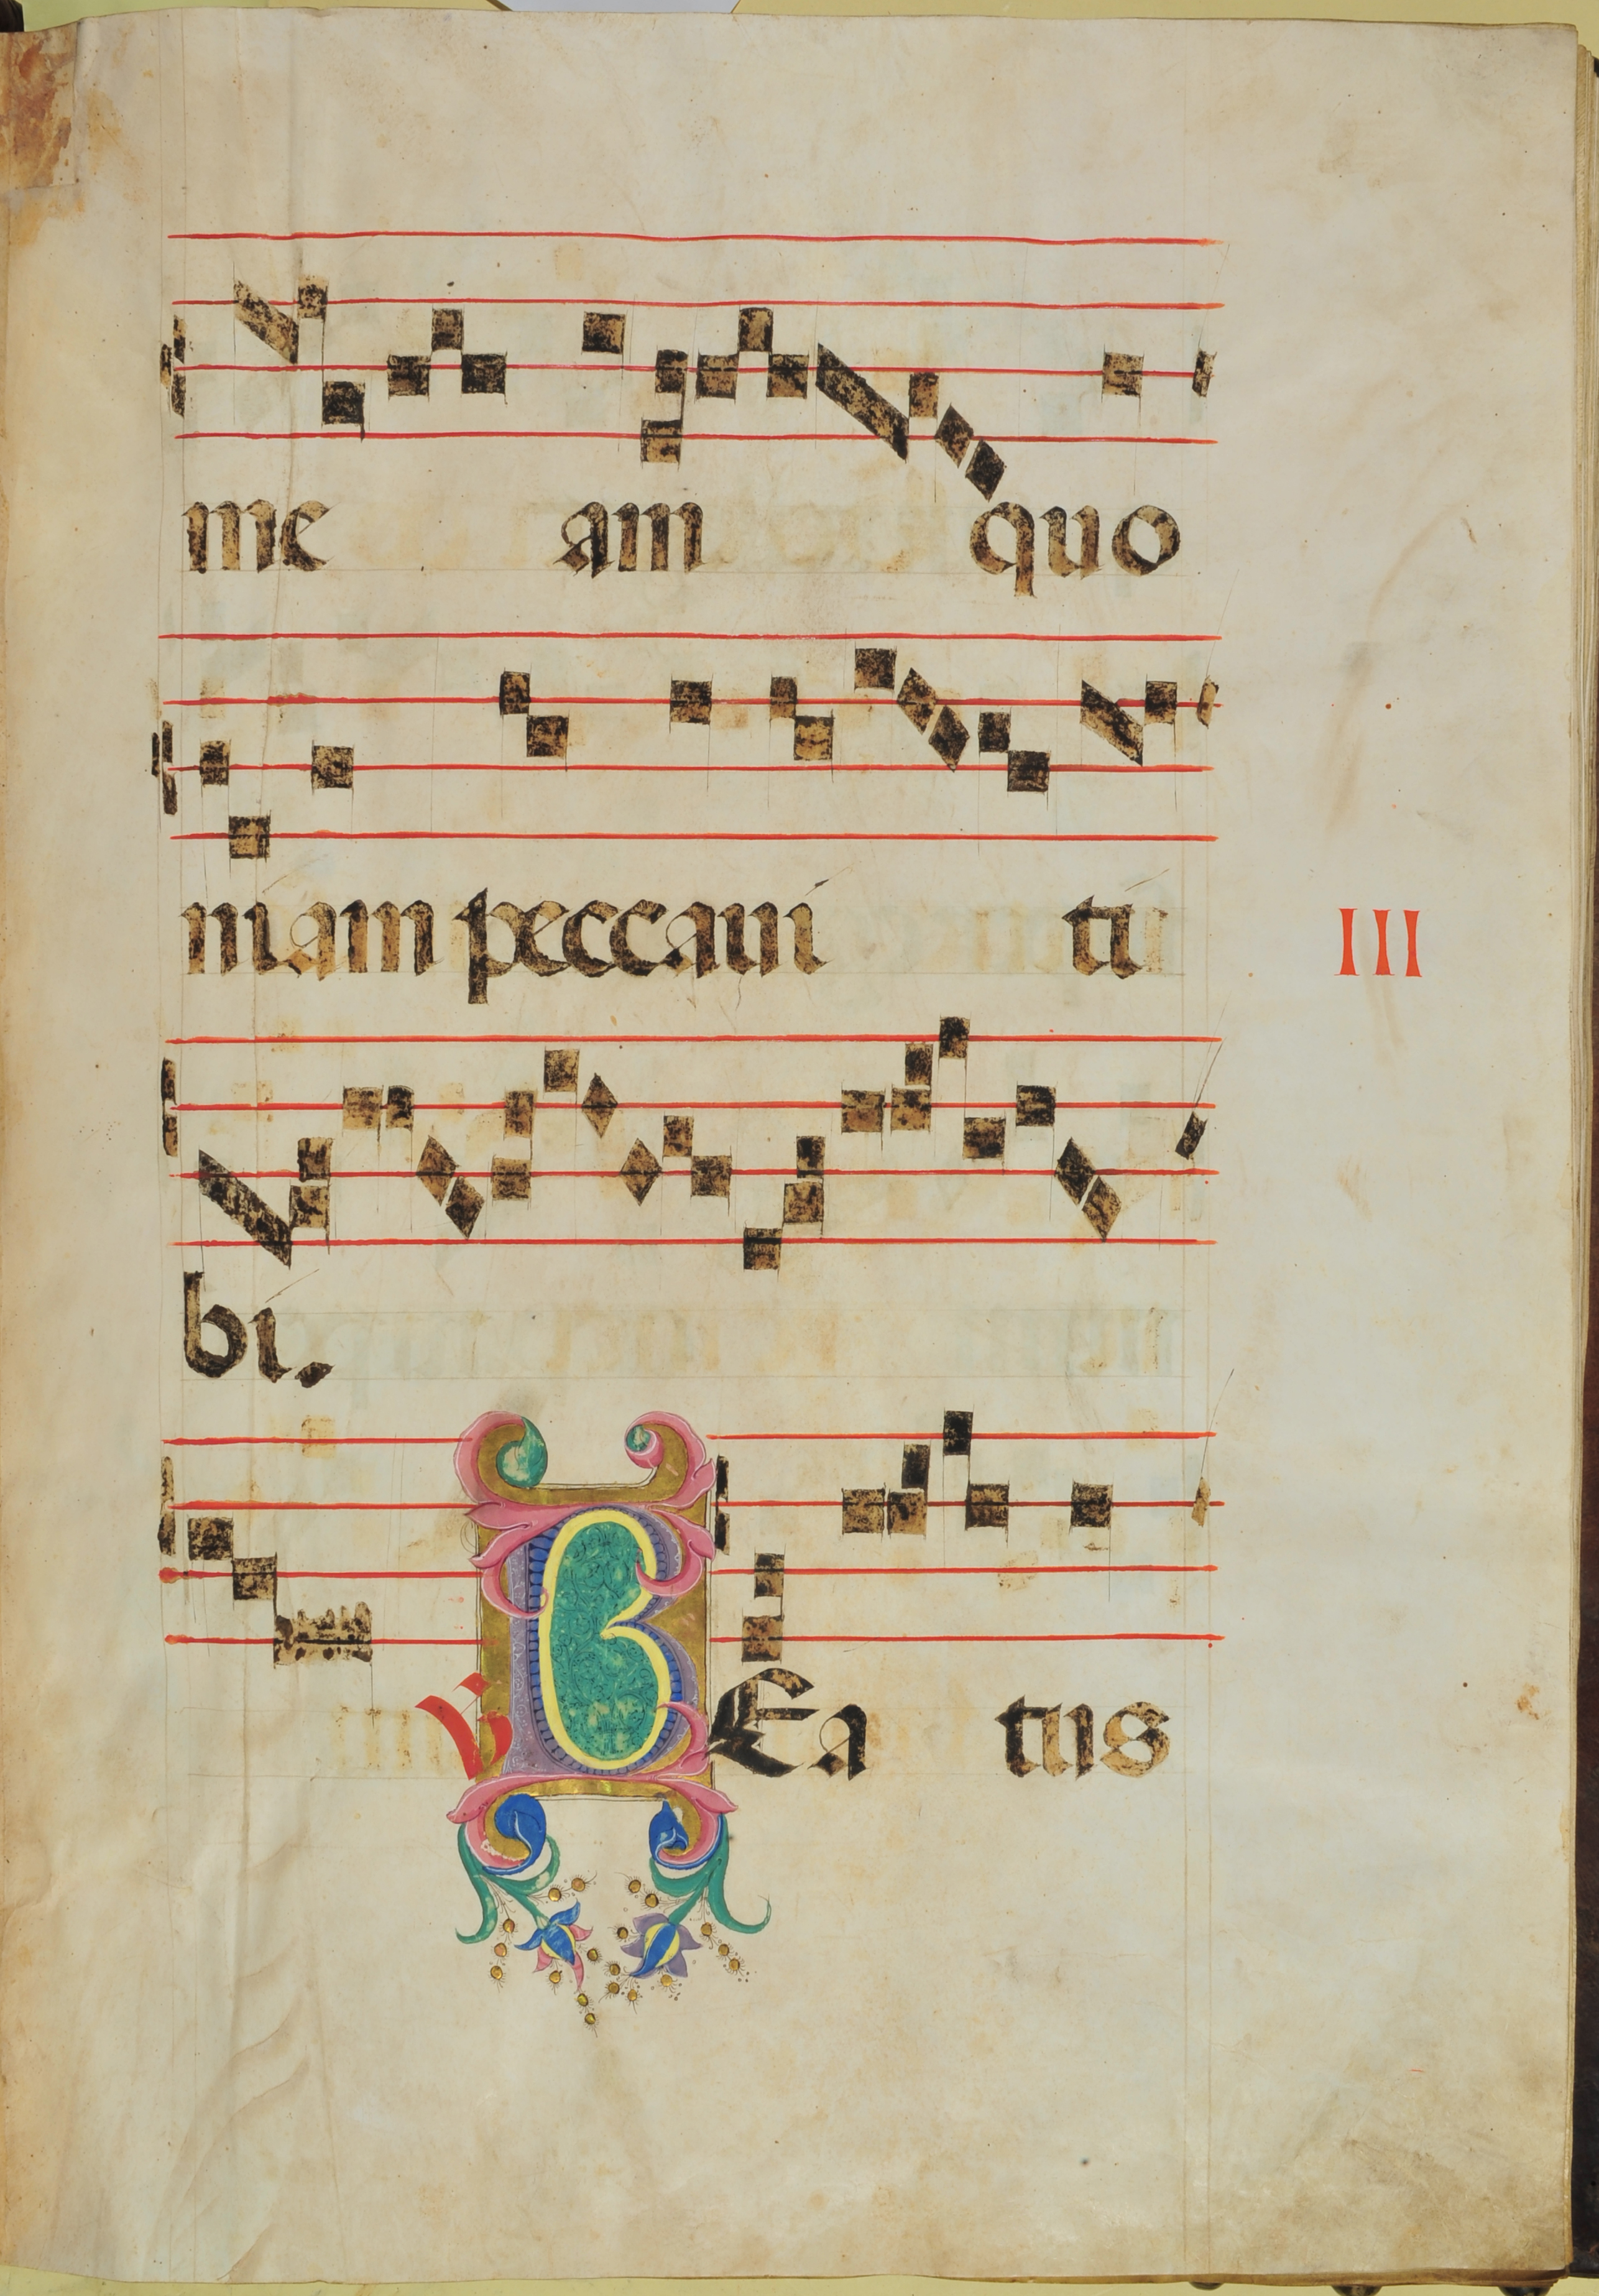 me am quo
niam peccaui ti
III
bi.
℣ BEatus